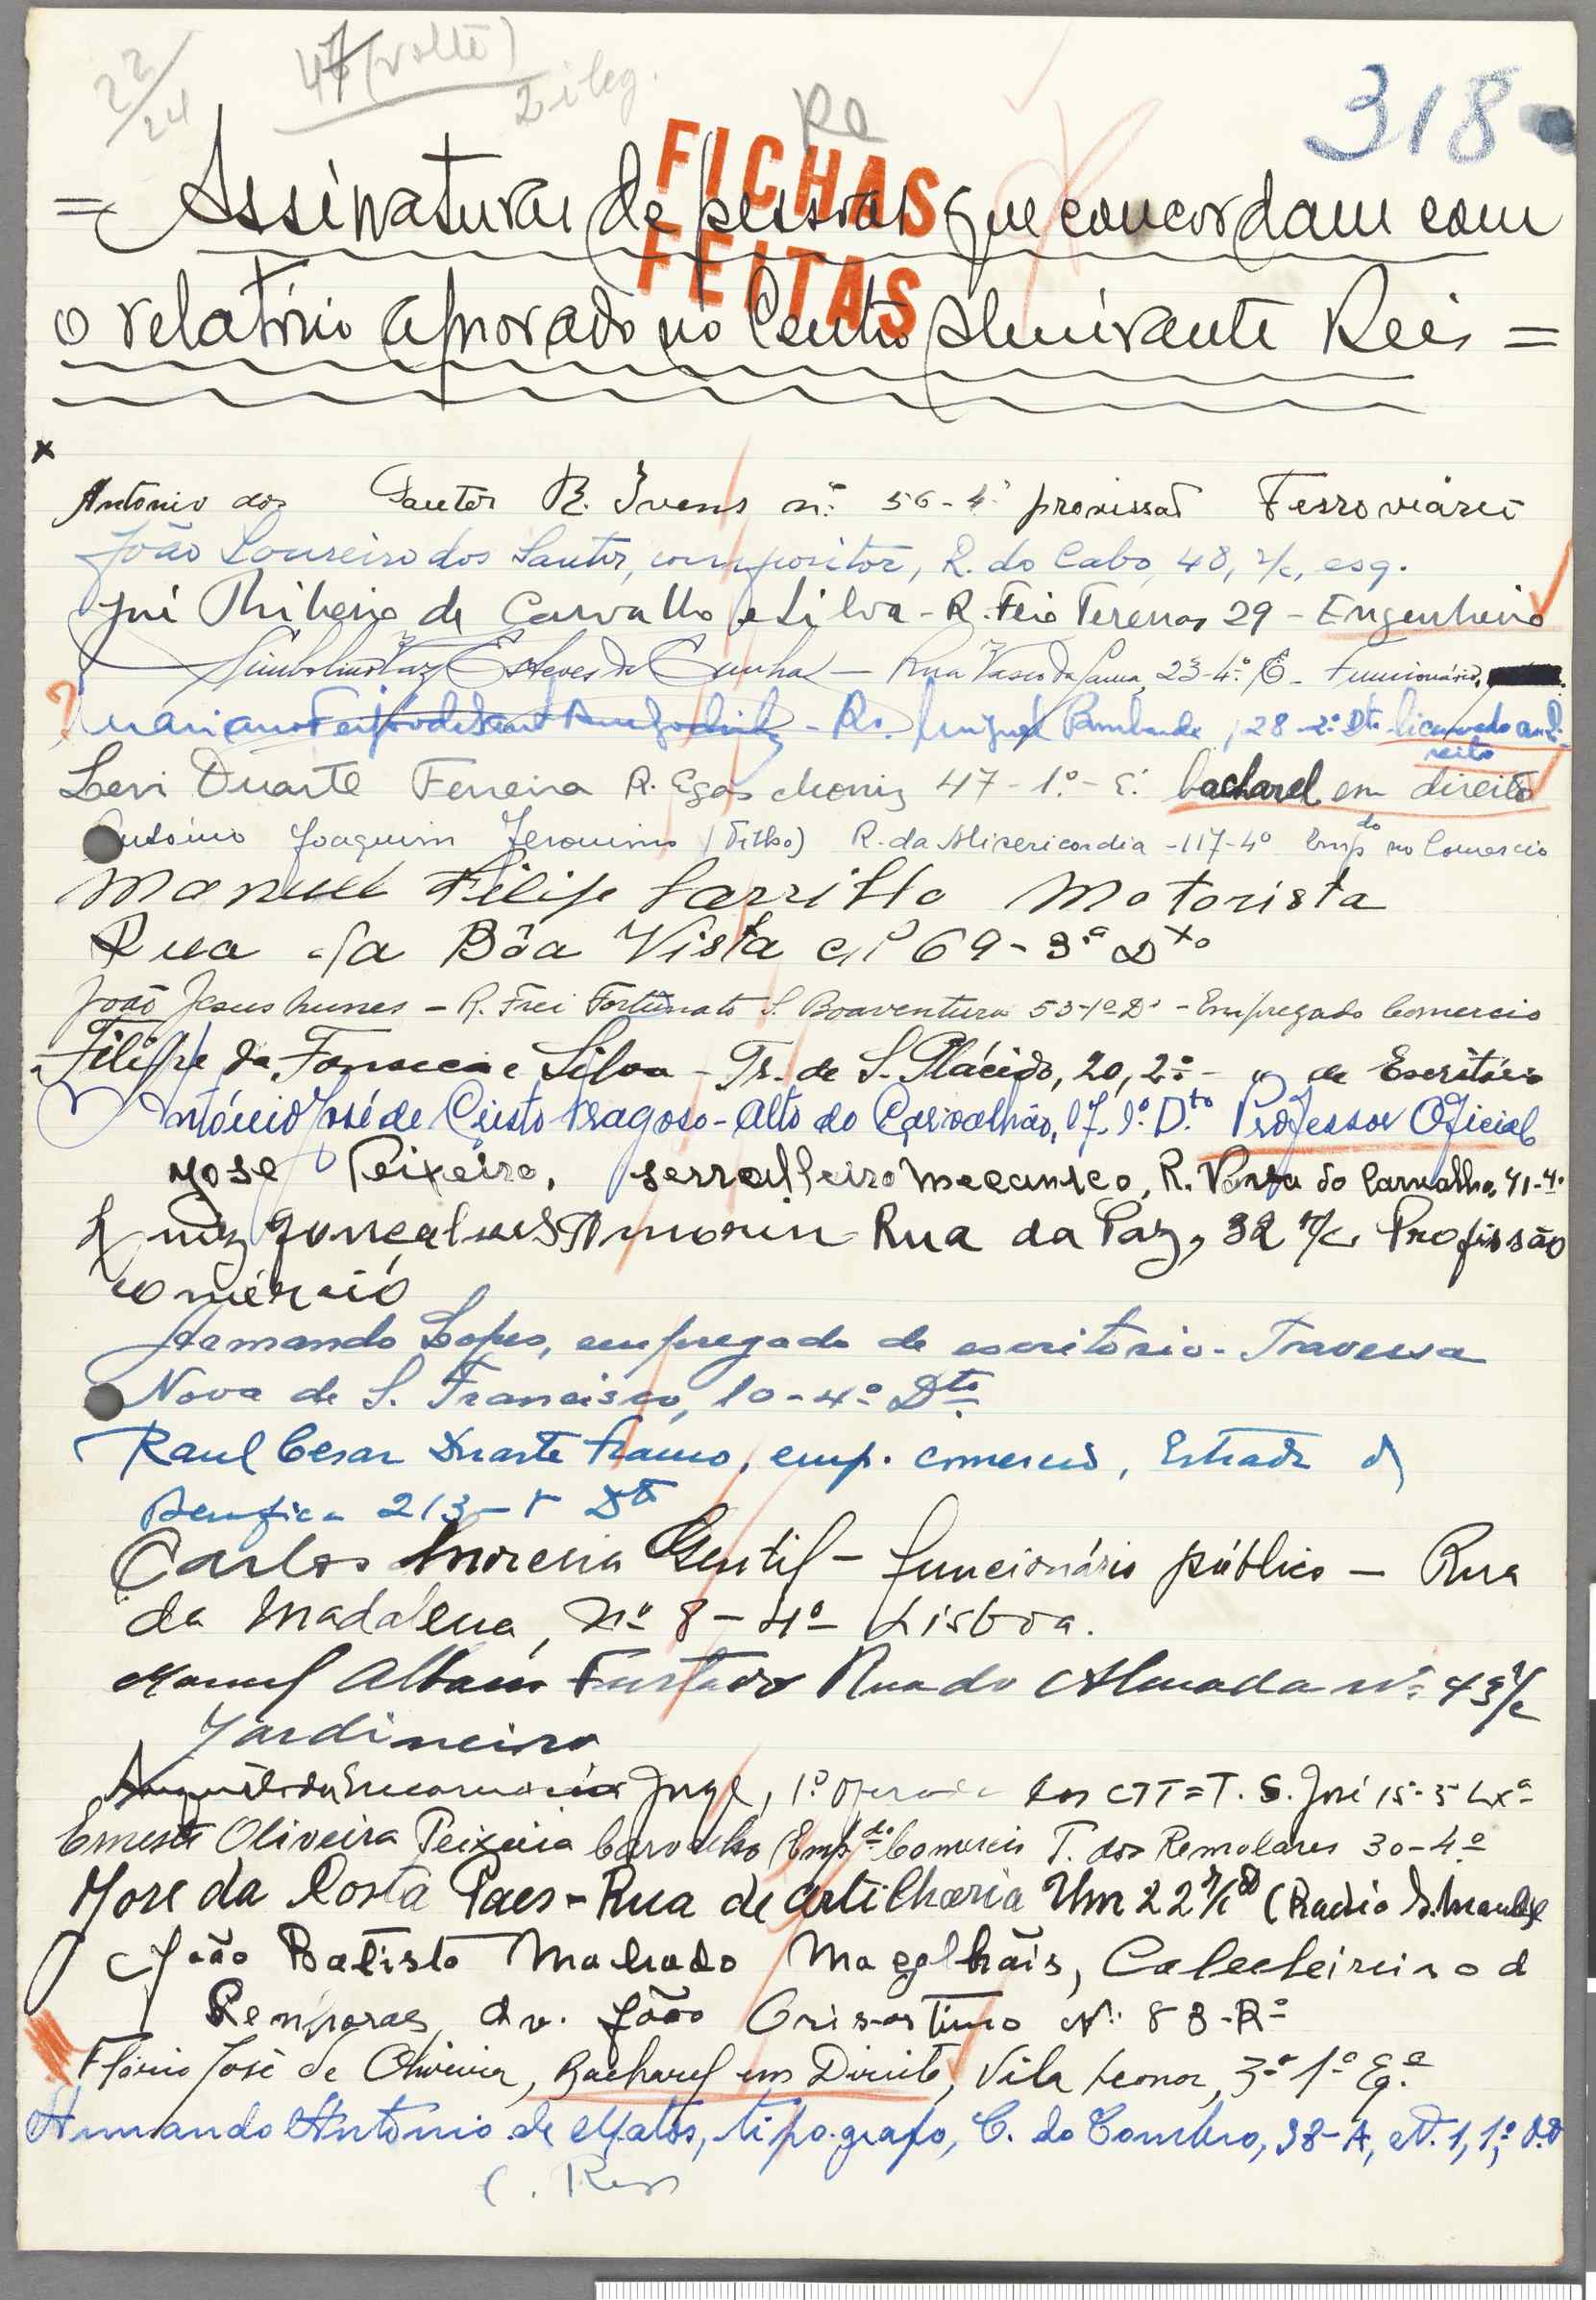 22/24
47 (volte)
2 ileg.
318
FICHAS
FEITAS
= Assinaturas de pessoas que concordam com
o relatório aprovado no Centro Almirante Reis =
x
Antonio dos Santos R. Ivens nº 56-4º Ferroviário
João Loureiro dos Santos, compositor, R. do Cabo, 48, r/c, esq.
Ribeiro de Carvalho e Silva - R. Feio Terenas 29 - Engenheiro
Esteves da Cunha — Rua Vasco da Gama, 23-4º E - Funcionário
? Mariano - R. Miguel Bombarda, 28-2º Dtº licenciado em Di-
reito
Levi Duarte Ferreira R. Egas Moniz 47-1º-E. bacharel em direito
António Joaquim Jeronimo (Filho) R. da Misericordia -117-4º Empdo no Comercio
Manuel Filipe Carrilho Motorista
Rua da Bôa Vista nº 69-3º Dto
João Jesus Nunes - R. Frei Fortunato S. Boaventura 53-1º Dº - Empregado Comercio
Filipe da Fonseca e Silva - Tr. de S. Plácido, 20, 2º - de Escritório
António José de Cristo Fragoso - Alto do Carvalhão, 1º D.to Professor Oficial
José Teixeira, serralheiro mecanico, R. do Carvalho, 41-4º
Luiz Gonçalves Amorim Rua da Paz, 32 r/c Profissão
comércio
Armando Lopes, empregado de escritório - Travessa
Nova de S. Francisco, 10-4º Dto
Raul Cesar Duarte Franco, emp. comercio, Estrada d
Benfica 213-r Dto
Carlos Moreira Gentil - funcionário público — Rua
da Madalena, nº 8-4º Lisboa.
Manuel Furtado Rua do Almada nº 43 r/c
Jardineiro
Augusto da Encarnação Jorge, 1º dos CTT = T. S. José 15-3º Lxª
Ernesto Oliveira Teixeira Carvalho (Empdo Comercio T. dos Remolares 30-4º
José da Costa Paes - Rua de Artilharia Um 22 r/c (Radio
João Batista Machado Magalhãis,
Av. João Crisostimo Nº 88-Rº
José de Oliveira, Bacharel em Direito, Vila Leonor, 3º 1º Eq.ª
Armando António de Matos, tipografo, C. do Combro, 38-A, N. 1, 1º